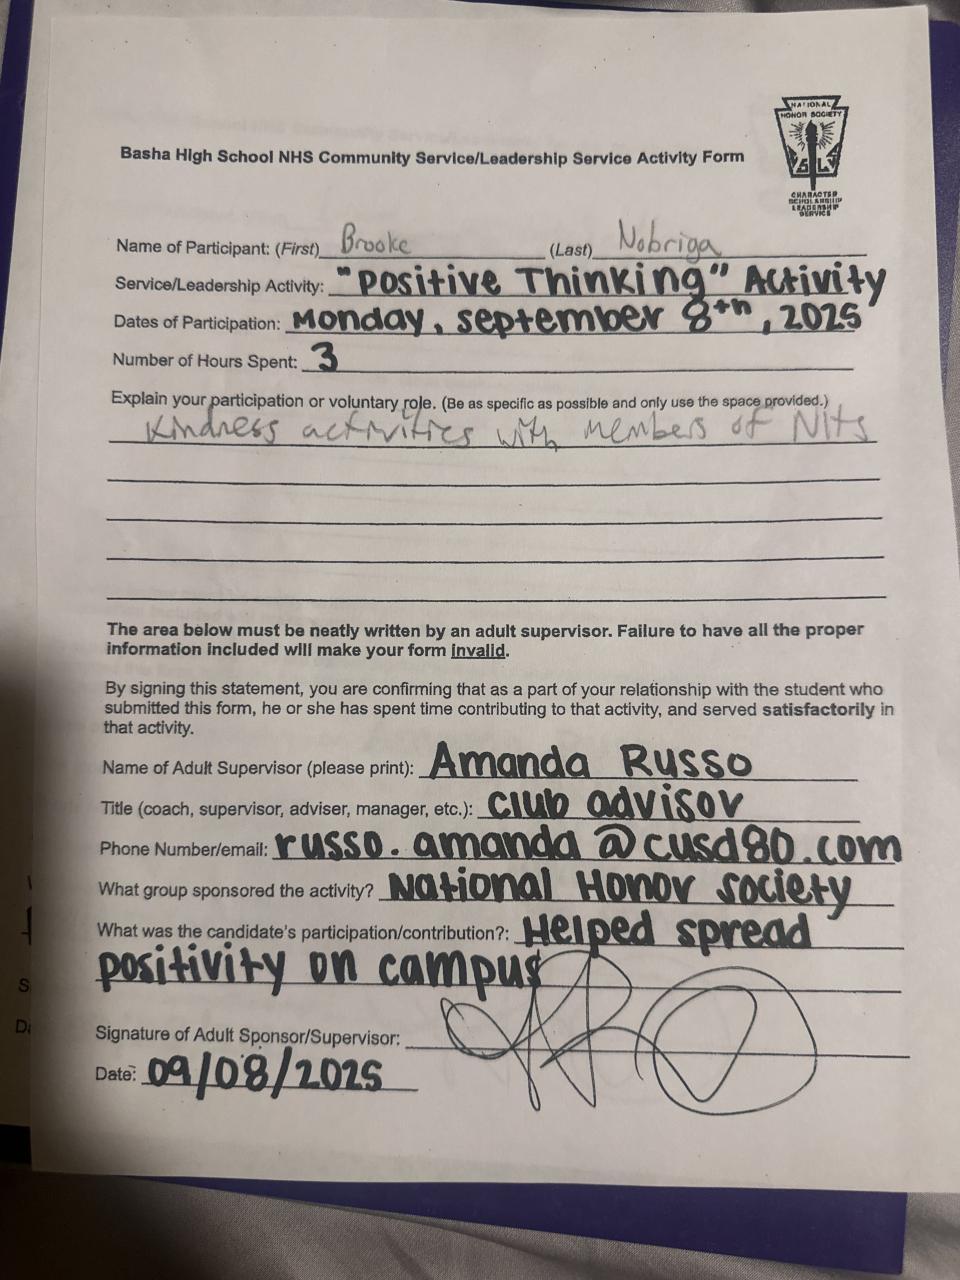 NATIONAL
HONOR SOCIETY
CHARACTER
SCHOLARSHIP
LEADERSHIP
SERVICE
Basha High School NHS Community Service/Leadership Service Activity Form
Name of Participant: (First) Brooke (Last) Nobriga
Service/Leadership Activity: "Positive Thinking" Activity
Dates of Participation: Monday, september 8th, 2025
Number of Hours Spent: 3
Explain your participation or voluntary role. (Be as specific as possible and only use the space provided.)
Kindness activities with members of NHS
The area below must be neatly written by an adult supervisor. Failure to have all the proper
information included will make your form invalid.
By signing this statement, you are confirming that as a part of your relationship with the student who
submitted this form, he or she has spent time contributing to that activity, and served satisfactorily in
that activity.
Name of Adult Supervisor (please print): Amanda Russo
Title (coach, supervisor, adviser, manager, etc.): club advisor
Phone Number/email: russo.amanda@cusd80.com
What group sponsored the activity? National Honor society
What was the candidate's participation/contribution?: Helped spread
positivity on campus
Signature of Adult Sponsor/Supervisor:
Date: 09/08/2025